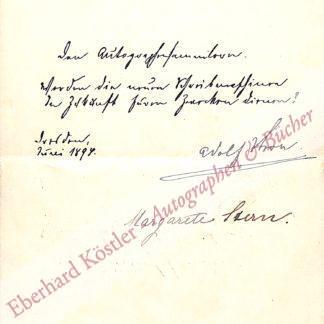 Den Autographensammlern.
Werden die neuen Schreibmaschinen
in Zukunft Ihren Zwecken dienen?
Dresden,
Juni 1897.
Adolf Stern
Margarete Stern.
Eberhard Köstler Autographen & Bücher